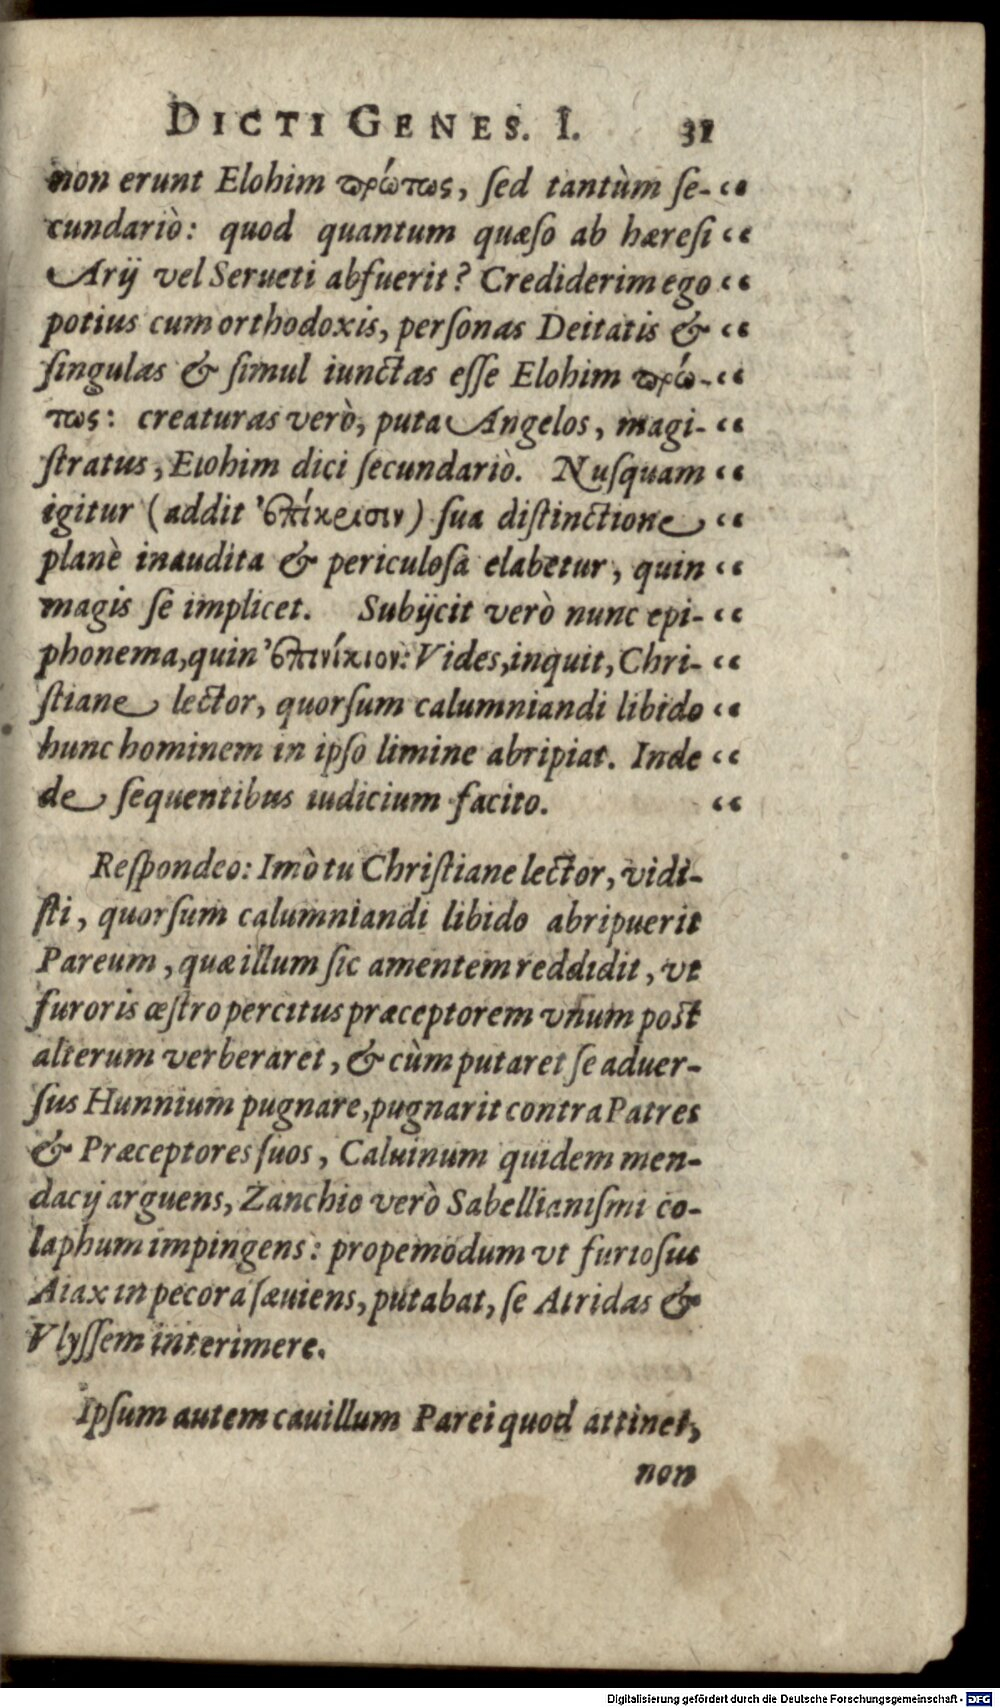 DICTI GENES. I. 31
non erunt Elohim πρώτως, ſed tantùm ſe- “
cundariò: quod quantum quæſo ab hæreſi “
Arij vel Serueti abfuerit? Crediderim ego “
potius cum orthodoxis, perſonas Deitatis & “
ſingulas & ſimul iunctas eſſe Elohim πρώ- “
τως: creaturas verò, puta Angelos, magi- “
ſtratus, Elohim dici ſecundariò. Nuſquam “
igitur (addit ἐπίκρισιν) ſua diſtinctione “
planè inaudita & periculoſa elabetur, quin “
magis ſe implicet. Subijcit verò nunc epi- “
phonema, quin ἐπινίκιον: Vides, inquit, Chri- “
ſtiane lector, quorſum calumniandi libido “
hunc hominem in ipſo limine abripiat. Inde “
de ſequentibus iudicium facito. “
Reſpondeo: Imò tu Chriſtiane lector, vidi-
ſti, quorſum calumniandi libido abripuerit
Pareum, quæ illum ſic amentem reddidit, vt
furoris œſtro percitus præceptorem vnum poſt
alterum verberaret, & cùm putaret ſe aduer-
ſus Hunnium pugnare, pugnarit contra Patres
& Præceptores ſuos, Caluinum quidem men-
dacij arguens, Zanchio verò Sabellianiſmi co-
laphum impingens: propemodum vt furioſus
Aiax in pecora ſæuiens, putabat, ſe Atridas &
Vlyſſem interimere.
Ipſum autem cauillum Parei quod attinet,
non
Digitalisierung gefördert durch die Deutsche Forschungsgemeinschaft - DFG